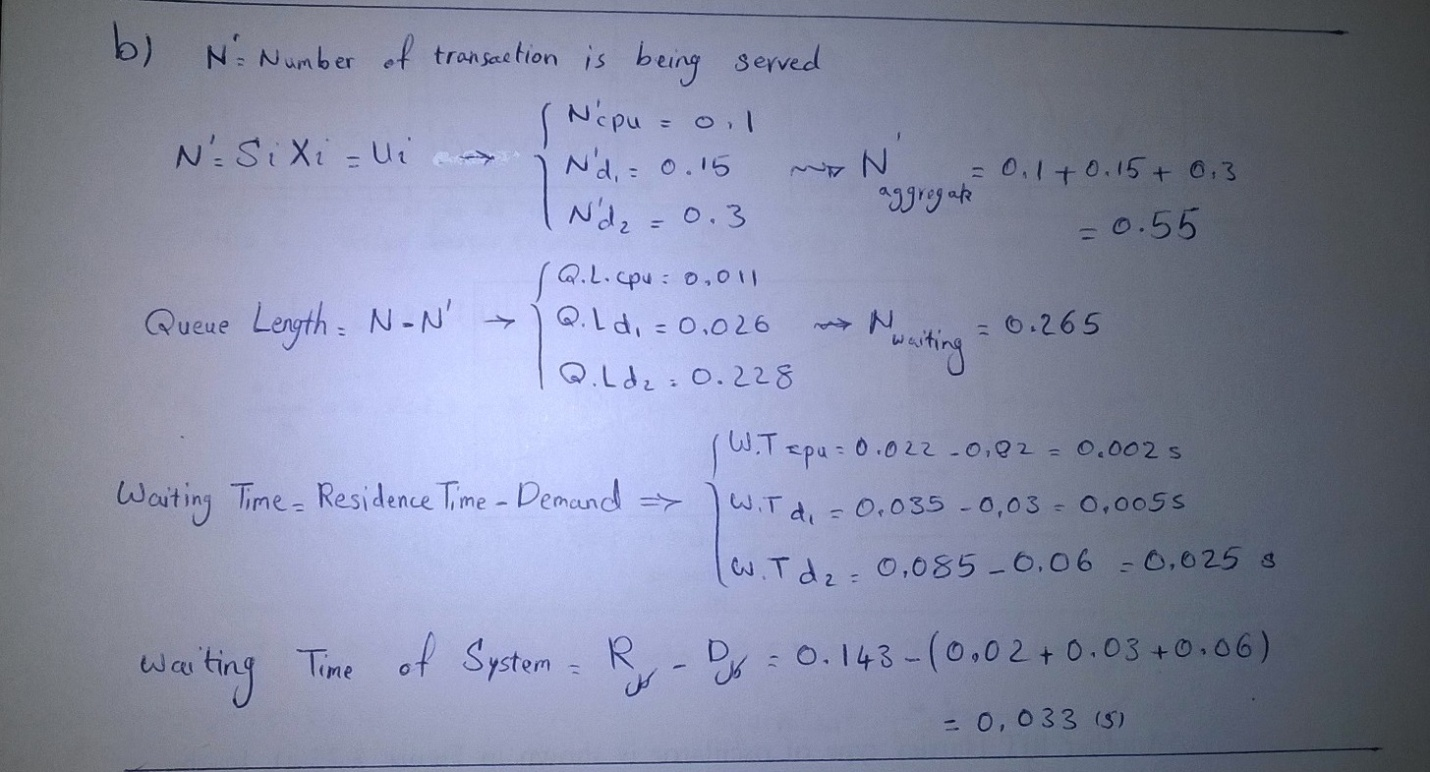 b) N' = Number of transaction is being served
N' = Si Xi = Ui → { N'cpu = 0,1
N'd₁ = 0.15
N'd₂ = 0.3
⇝ N'aggregate = 0,1 + 0.15 + 0,3
= 0.55
Queue Length = N - N' → { Q.L.cpu = 0,011
Q.L d₁ = 0.026
Q.L d₂ = 0.228
⇝ Nwaiting = 0.265
Waiting Time = Residence Time - Demand ⇒ { W.T cpu = 0.022 - 0,02 = 0.002 s
W.T d₁ = 0,035 - 0,03 = 0,005s
W.T d₂ = 0,085 - 0.06 = 0,025 s
waiting Time of System = R - D = 0.143 - (0,02 + 0.03 + 0.06)
= 0,033 (s)